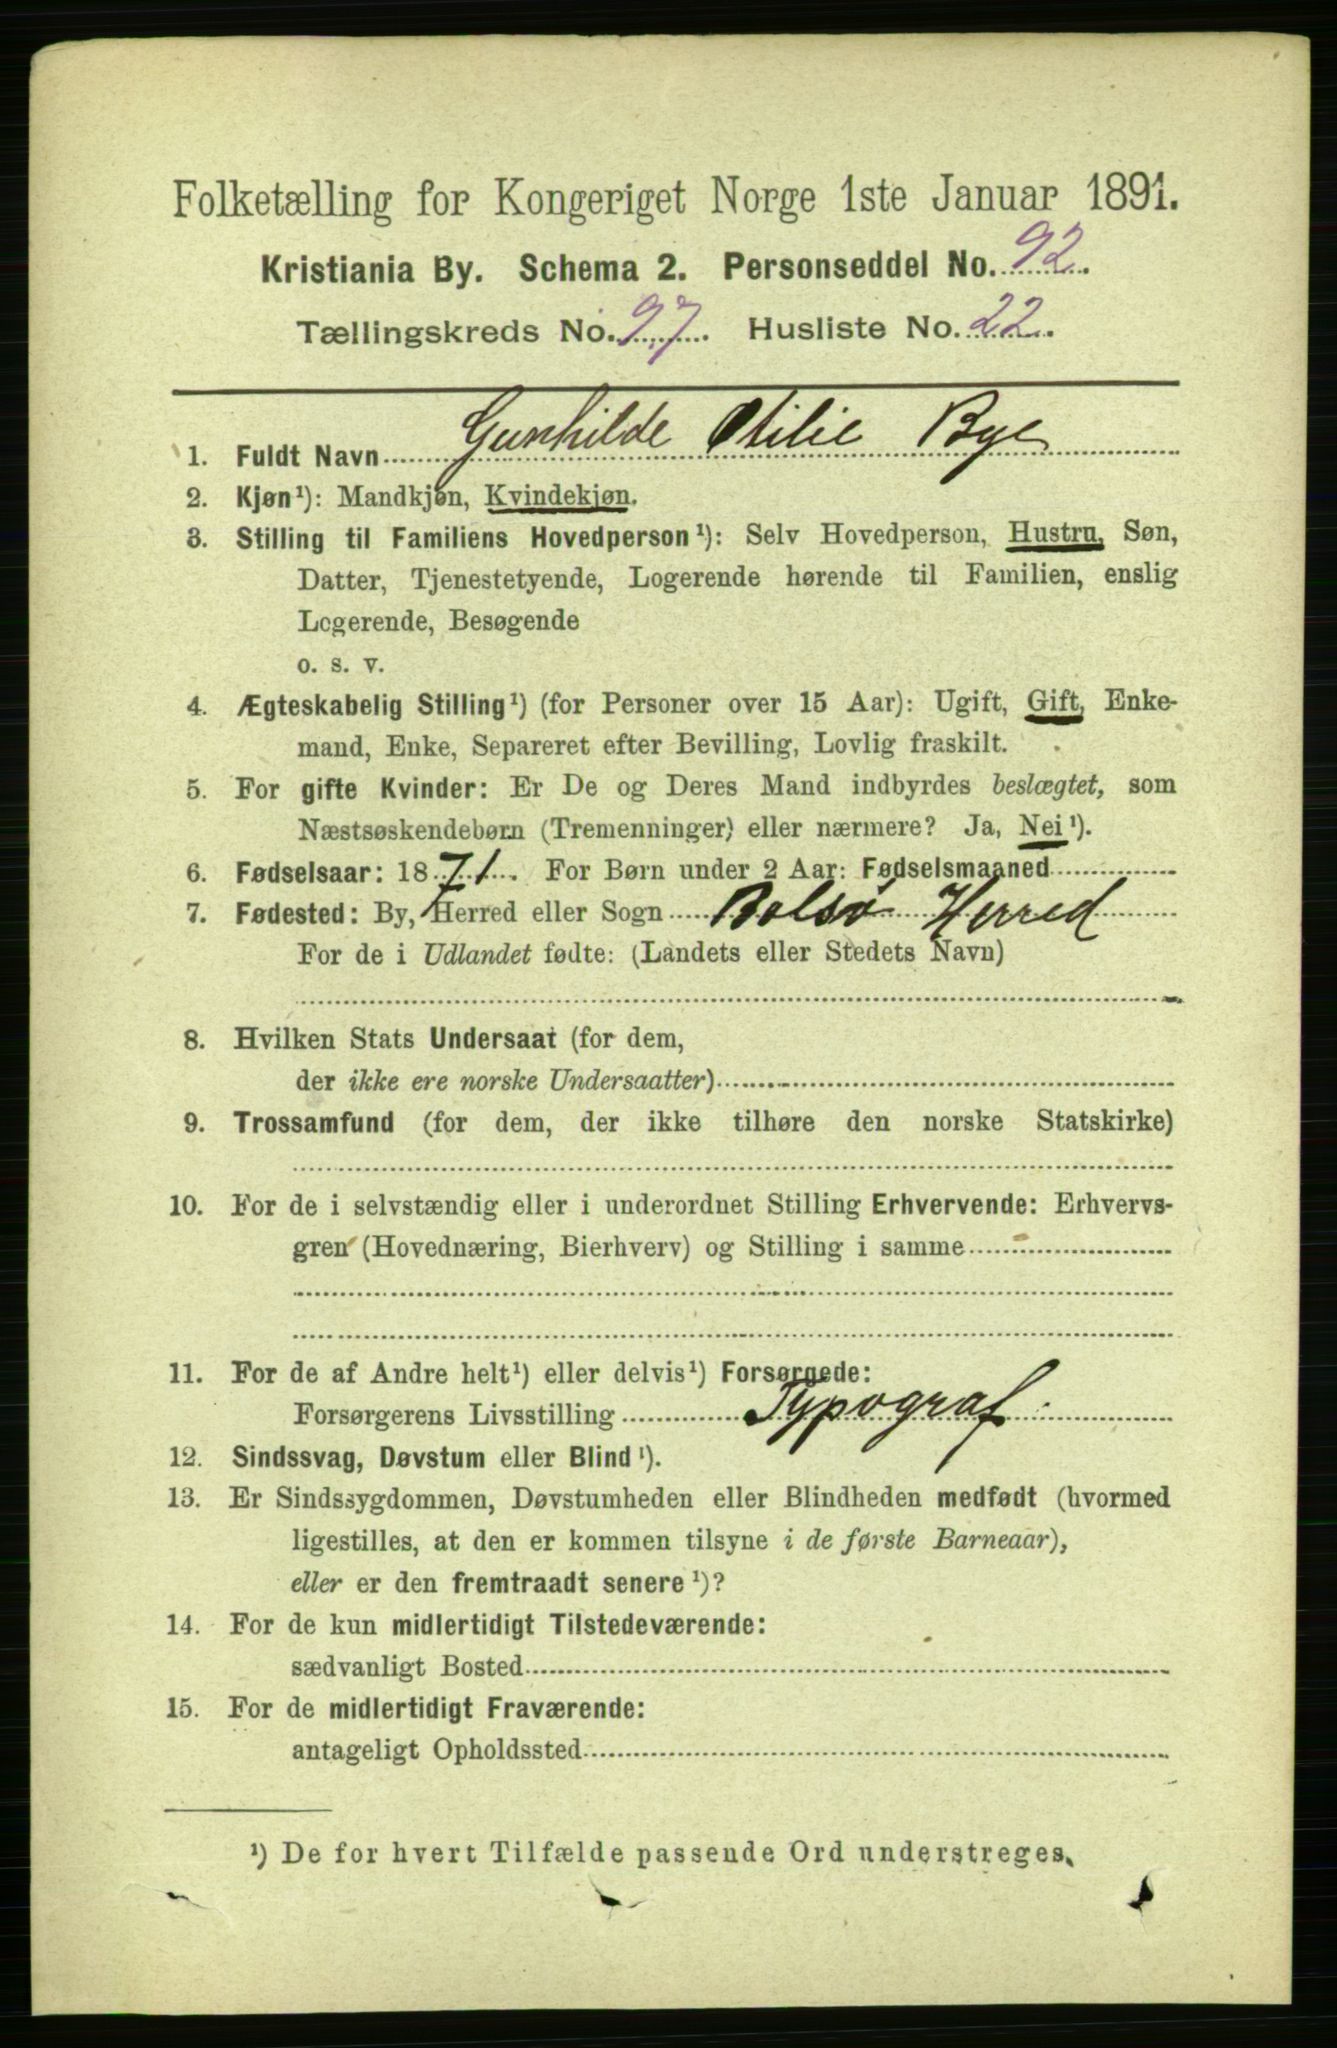 Folketælling for Kongeriget Norge 1ste Januar 1891.
Kristiania By. Schema 2. Personseddel No. 92.
Tællingskreds No. 97. Husliste No. 22.
1. Fuldt Navn Gunhilde Otilie Bye
2. Kjøn¹): Mandkjøn, Kvindekjøn.
3. Stilling til Familiens Hovedperson¹): Selv Hovedperson, Hustru, Søn,
Datter, Tjenestetyende, Logerende hørende til Familien, enslig
Logerende, Besøgende
o. s. v.
4. Ægteskabelig Stilling¹) (for Personer over 15 Aar): Ugift, Gift, Enke-
mand, Enke, Separeret efter Bevilling, Lovlig fraskilt.
5. For gifte Kvinder: Er De og Deres Mand indbyrdes beslægtet, som
Næstsøskendebørn (Tremenninger) eller nærmere? Ja, Nei¹).
6. Fødselsaar: 1871. For Børn under 2 Aar: Fødselsmaaned
7. Fødested: By, Herred eller Sogn Bolsø Herred
For de i Udlandet fødte: (Landets eller Stedets Navn)
8. Hvilken Stats Undersaat (for dem,
der ikke ere norske Undersaatter)
9. Trossamfund (for dem, der ikke tilhøre den norske Statskirke)
10. For de i selvstændig eller i underordnet Stilling Erhvervende: Erhvervs-
gren (Hovednæring, Bierhverv) og Stilling i samme
11. For de af Andre helt¹) eller delvis¹) Forsørgede:
Forsørgerens Livsstilling Typograf
12. Sindssvag, Døvstum eller Blind¹).
13. Er Sindssygdommen, Døvstumheden eller Blindheden medfødt (hvormed
ligestilles, at den er kommen tilsyne i de første Barneaar),
eller er den fremtraadt senere¹)?
14. For de kun midlertidigt Tilstedeværende:
sædvanligt Bosted
15. For de midlertidigt Fraværende:
antageligt Opholdssted
¹) De for hvert Tilfælde passende Ord understreges.